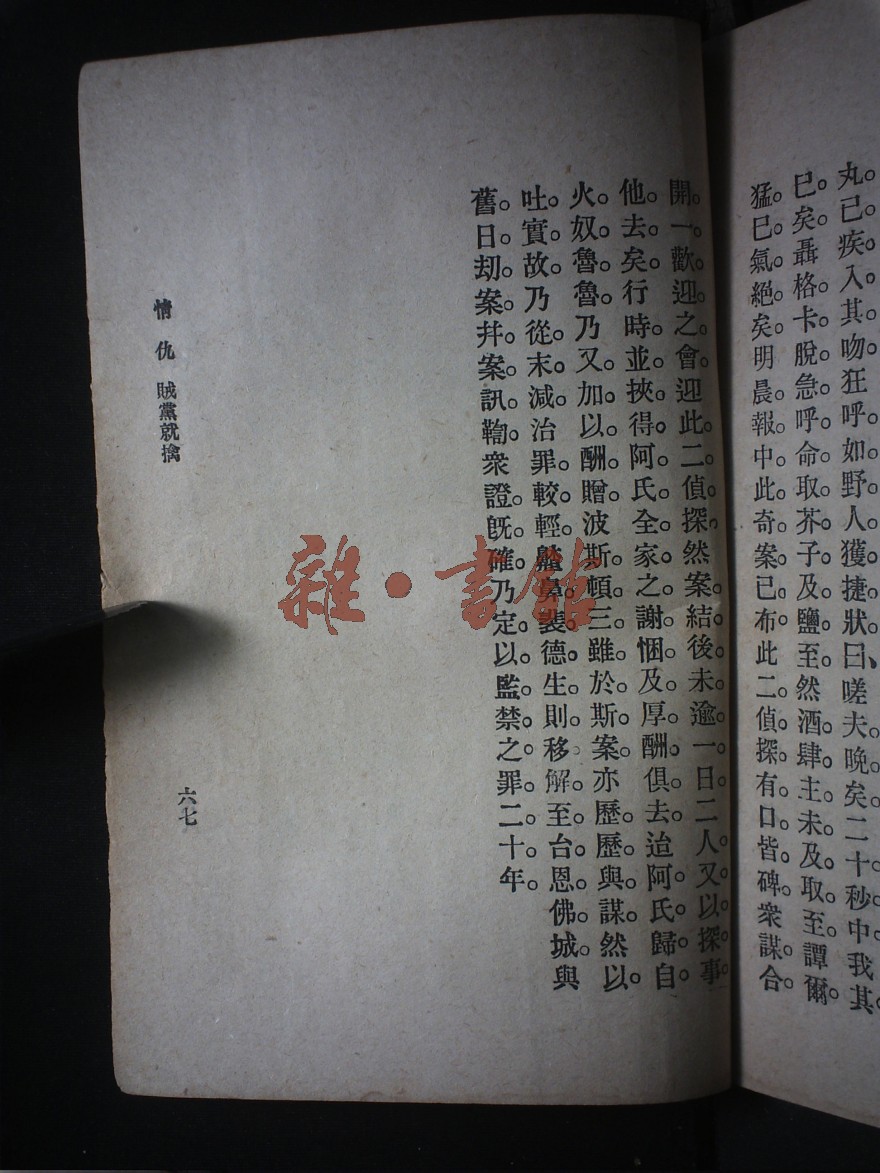 丸。已疾入其吻。狂呼如野人獲捷狀。曰、嗟夫。晚矣。二十秒中。我其
已。已矣。聶格卡脫急呼。命取芥子及鹽至。然酒肆主未及取至。譚爾
猛。已氣絕矣。明晨報中。此奇案已布。此二偵探。有口皆碑。衆謀合。
開。一歡迎之會。迎此二偵探。然案結後未逾一日。二人又以探事
他去矣。行時。並挾得阿氏全家之謝悃及厚酬俱去。迨阿氏歸自
火奴魯魯。乃又加以酬贈。波斯頓三雖於斯案。亦歷歷與謀。然以
吐實故。乃從末減。治罪較輕。裴德生。則移解至台恩佛城。與
舊日劫案。幷案訊鞫。衆證旣確。乃定以監禁之罪二十年。
情仇 賊黨就擒
六七
雜·書館